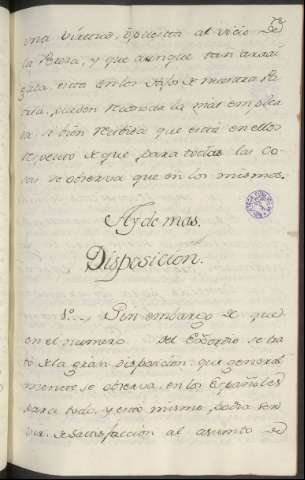 una virtud, opuesta al vicio de
la Pereza, y que aunque tan arrai
gada, esta en los Hijos de nuestra Pa
tria, pueden numerar la más
se bien que esta en ellos
respecto de que para todas las Co
sas se observa que en los mismos.
Ay de mas.
Disposicion.
1º. Sin embargo de que
en el numero del Exordio se tra
tó de la gran disposicion que general
mente se observa, en los Españoles
para todo, y esto mismo podia ser
vir de satisfaccion al asunto de